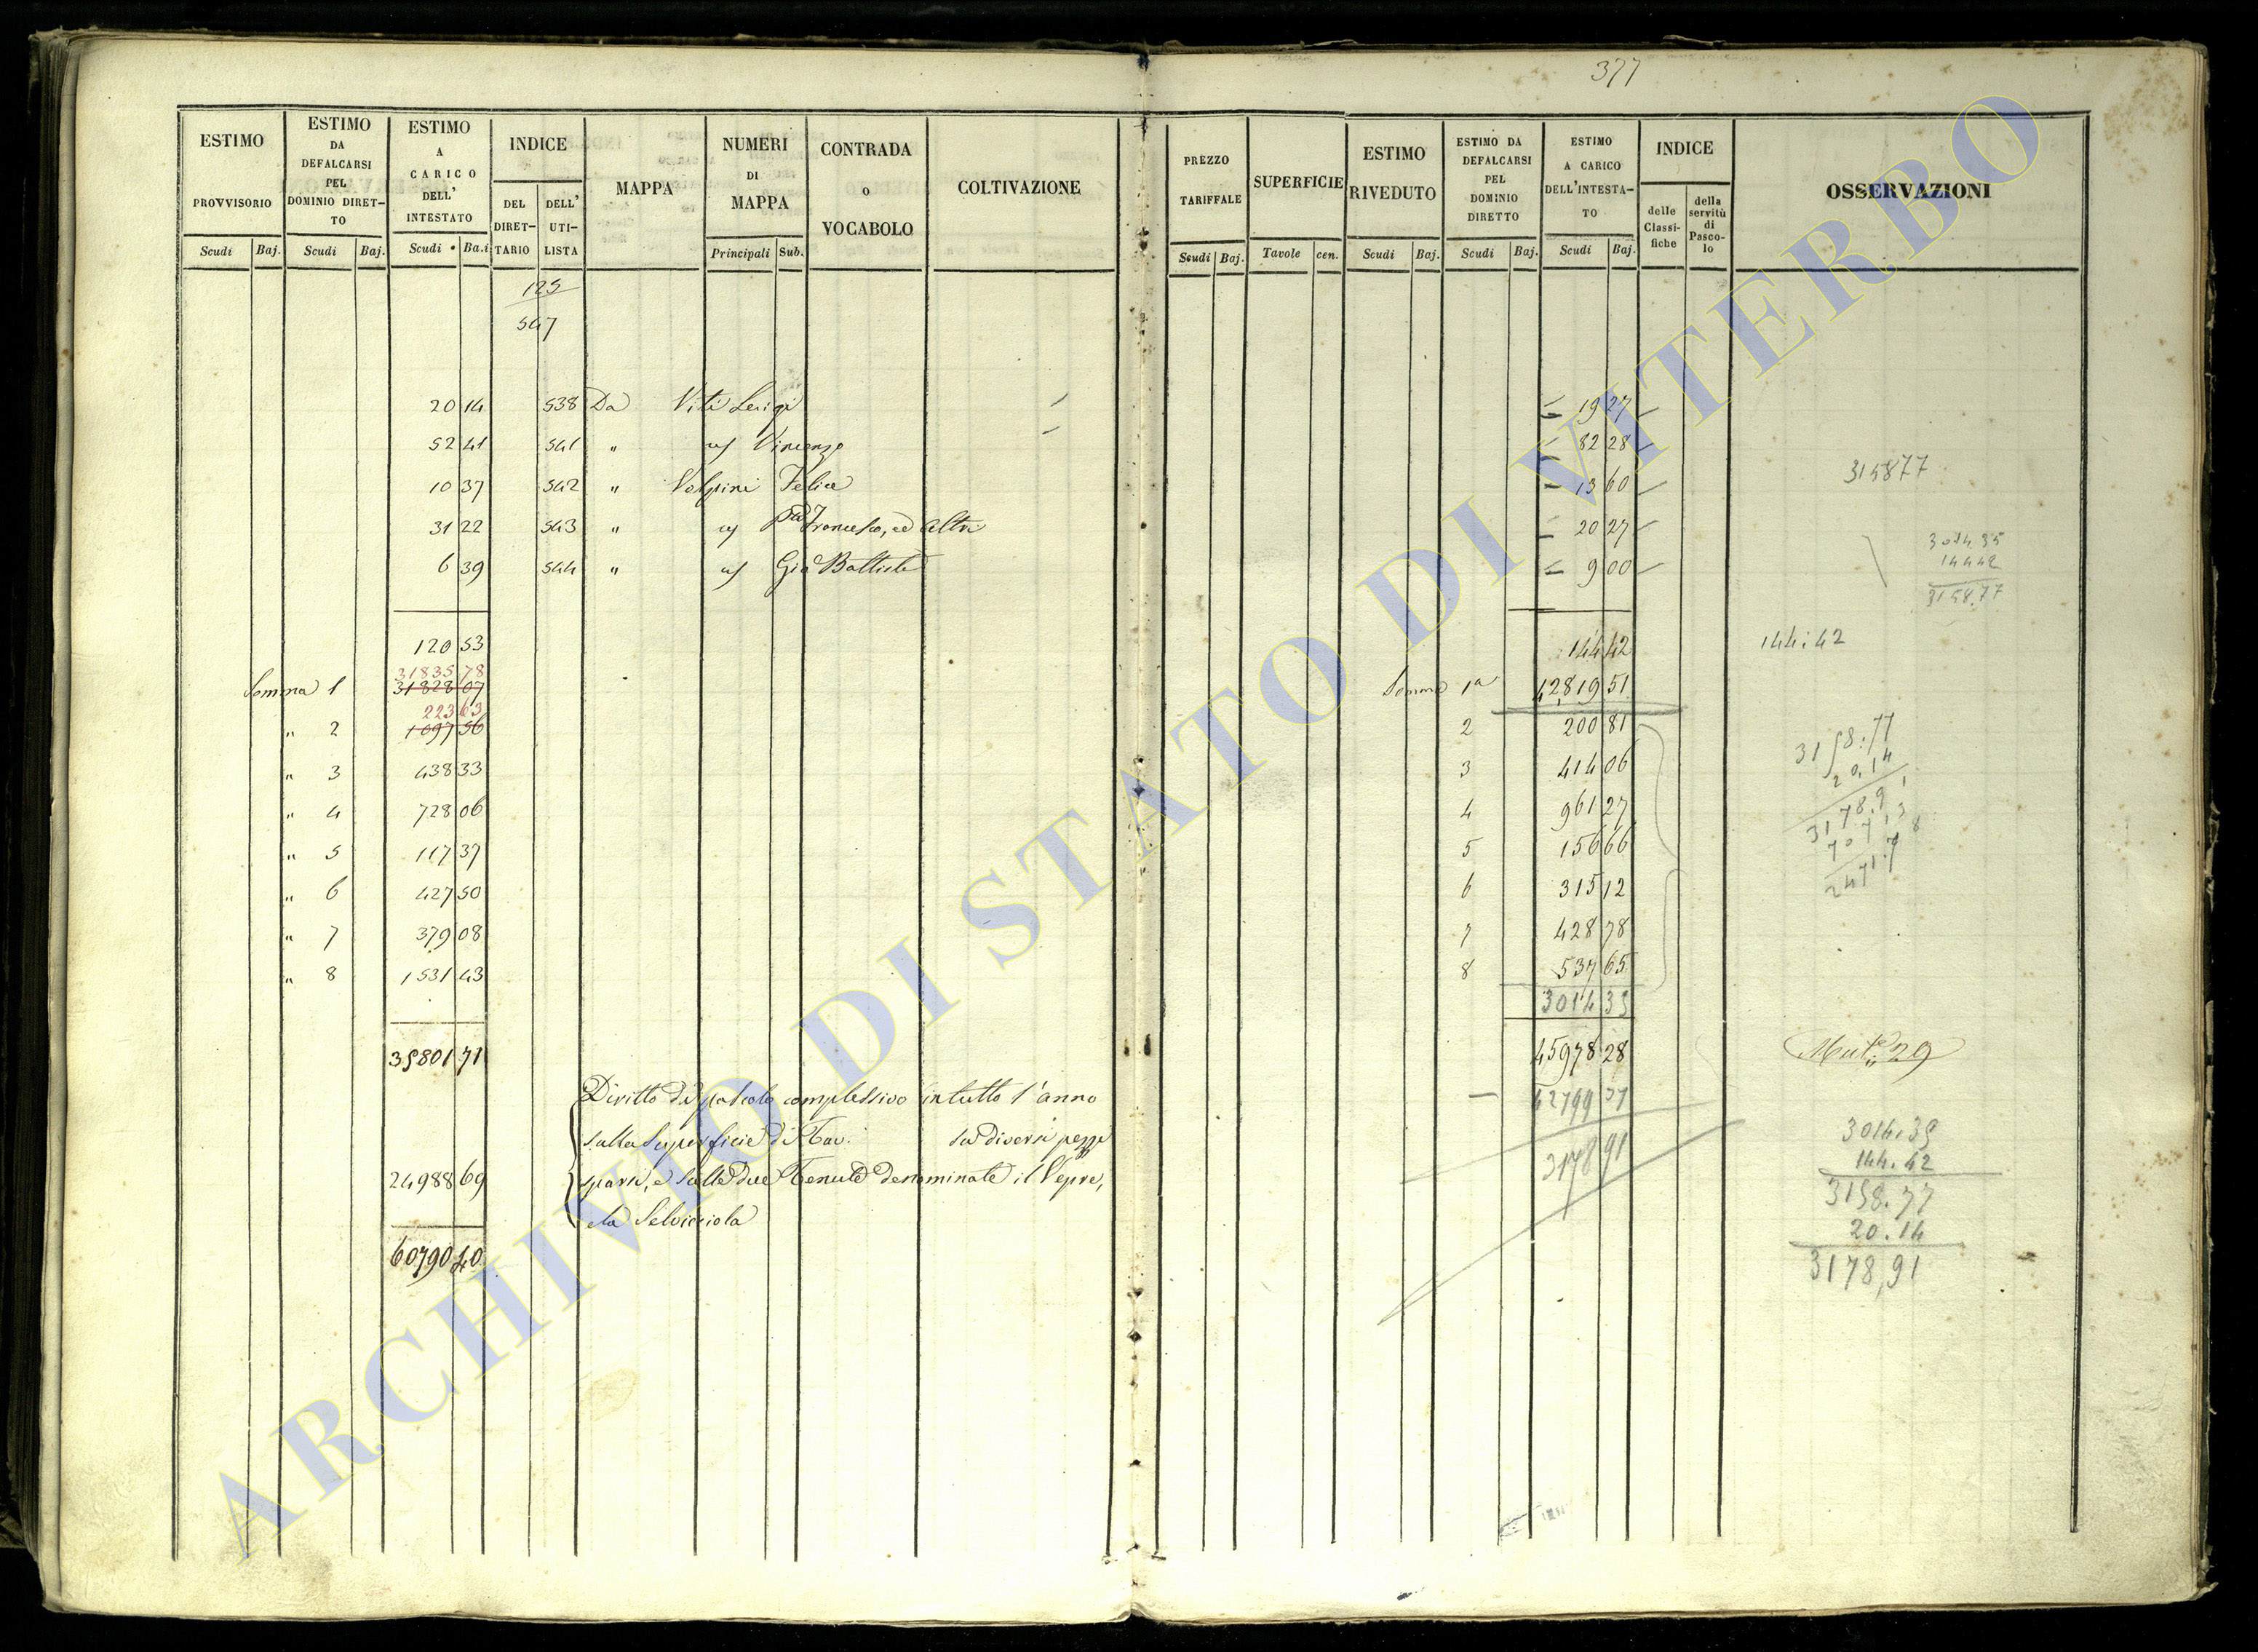 377
ESTIMO PROVVISORIO
ESTIMO DA DEFALCARSI PEL DOMINIO DIRET-TO
ESTIMO A CARICO DELL' INTESTATO
INDICE
DEL DIRET-TARIO
DELL' UTI-LISTA
MAPPA
NUMERI DI MAPPA
CONTRADA o VOCABOLO
COLTIVAZIONE
PREZZO TARIFFALE
SUPERFICIE
ESTIMO RIVEDUTO
ESTIMO DA DEFALCARSI PEL DOMINIO DIRETTO
ESTIMO A CARICO DELL'INTESTA-TO
INDICE
delle Classi-fiche
della servitù di Pasco-lo
OSSERVAZIONI
Scudi Baj. Scudi Baj. Scudi Ba.i Principali Sub.
Scudi Baj. Tavole cen. Scudi Baj. Scudi Baj. Scudi Baj.
125
547
20 14 538 Da Viti Luigi 19 27
52 41 541 " Vincenzo 82 28
10 37 542 " Volpini Felice 13 60
31 22 543 " Francesco, ed altri 20 27
6 39 544 " Gio Battista 9 00
120 53 144 42
31835 78
Somma 1 31828 07 Somma 1a 42819 51
223 63
" 2 1097 56 2 200 81
" 3 438 33 3 414 06
" 4 728 06 4 961 27
" 5 117 37 5 156 66
" 6 427 50 6 315 12
" 7 379 08 7 428 78
" 8 1531 43 8 537 65
3014 35
35801 71 45978 28
42799 37
3178 91
Diritto di pascolo complessivo in tutto l'anno
sulla Superficie di Tav. su diversi pezzi
24988 69 sparsi, e sulle due Tenute denominate il Vepre,
e la Selvicciola
60790 40
315877
3014.35
144 42
3158.77
144:42
3158.77
20.14
3178.91
3014.35
144.42
3158.77
20.14
3178,91
ARCHIVIO DI STATO DI VITERBO